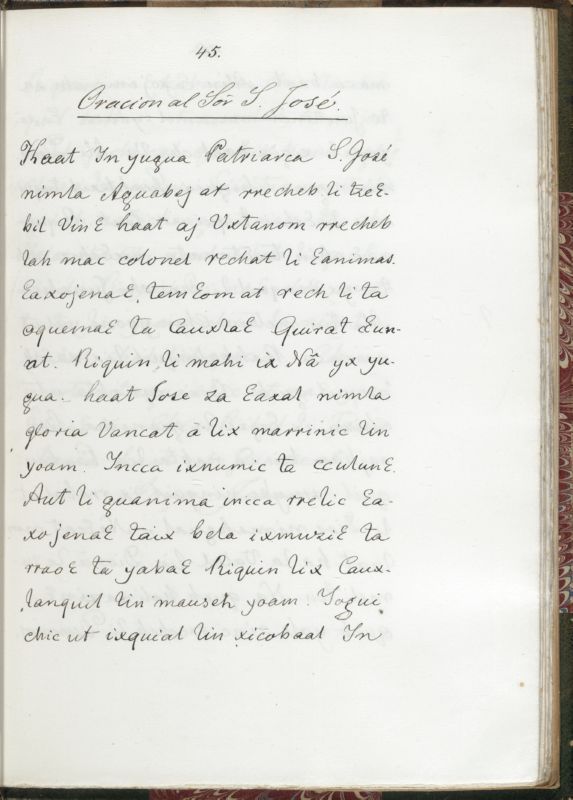 45.
Oracion al Sōr S. José.
Haat In yuqua Patriarca S. José
nimla Aquabej at rrecheb li tzeƐ-
bil VinƐ haat aj Vxtanom rrecheb
lah mac colonel rechat li Ɛanimas.
ƐaxojenaƐ, temƐomat rech li ta
oquemaƐ ta CauxlaƐ Quirat Ɛun-
at. Riquin li mahi ix Nâ yx yu-
qua. haat Jose za Ɛaxal nimla
gloria Vancat â lix marrinic lin
yoam. Incca ixnumic ta cculunƐ.
Aut li quanima incca rrelic Ɛa-
xojenaƐ taix bela ixmuziƐ ta
rraoƐ ta yabaƐ Riquin lix Caux-
lanquil lin mauseh yoam. Joqui
chic ut ixquial lin xicobaal In